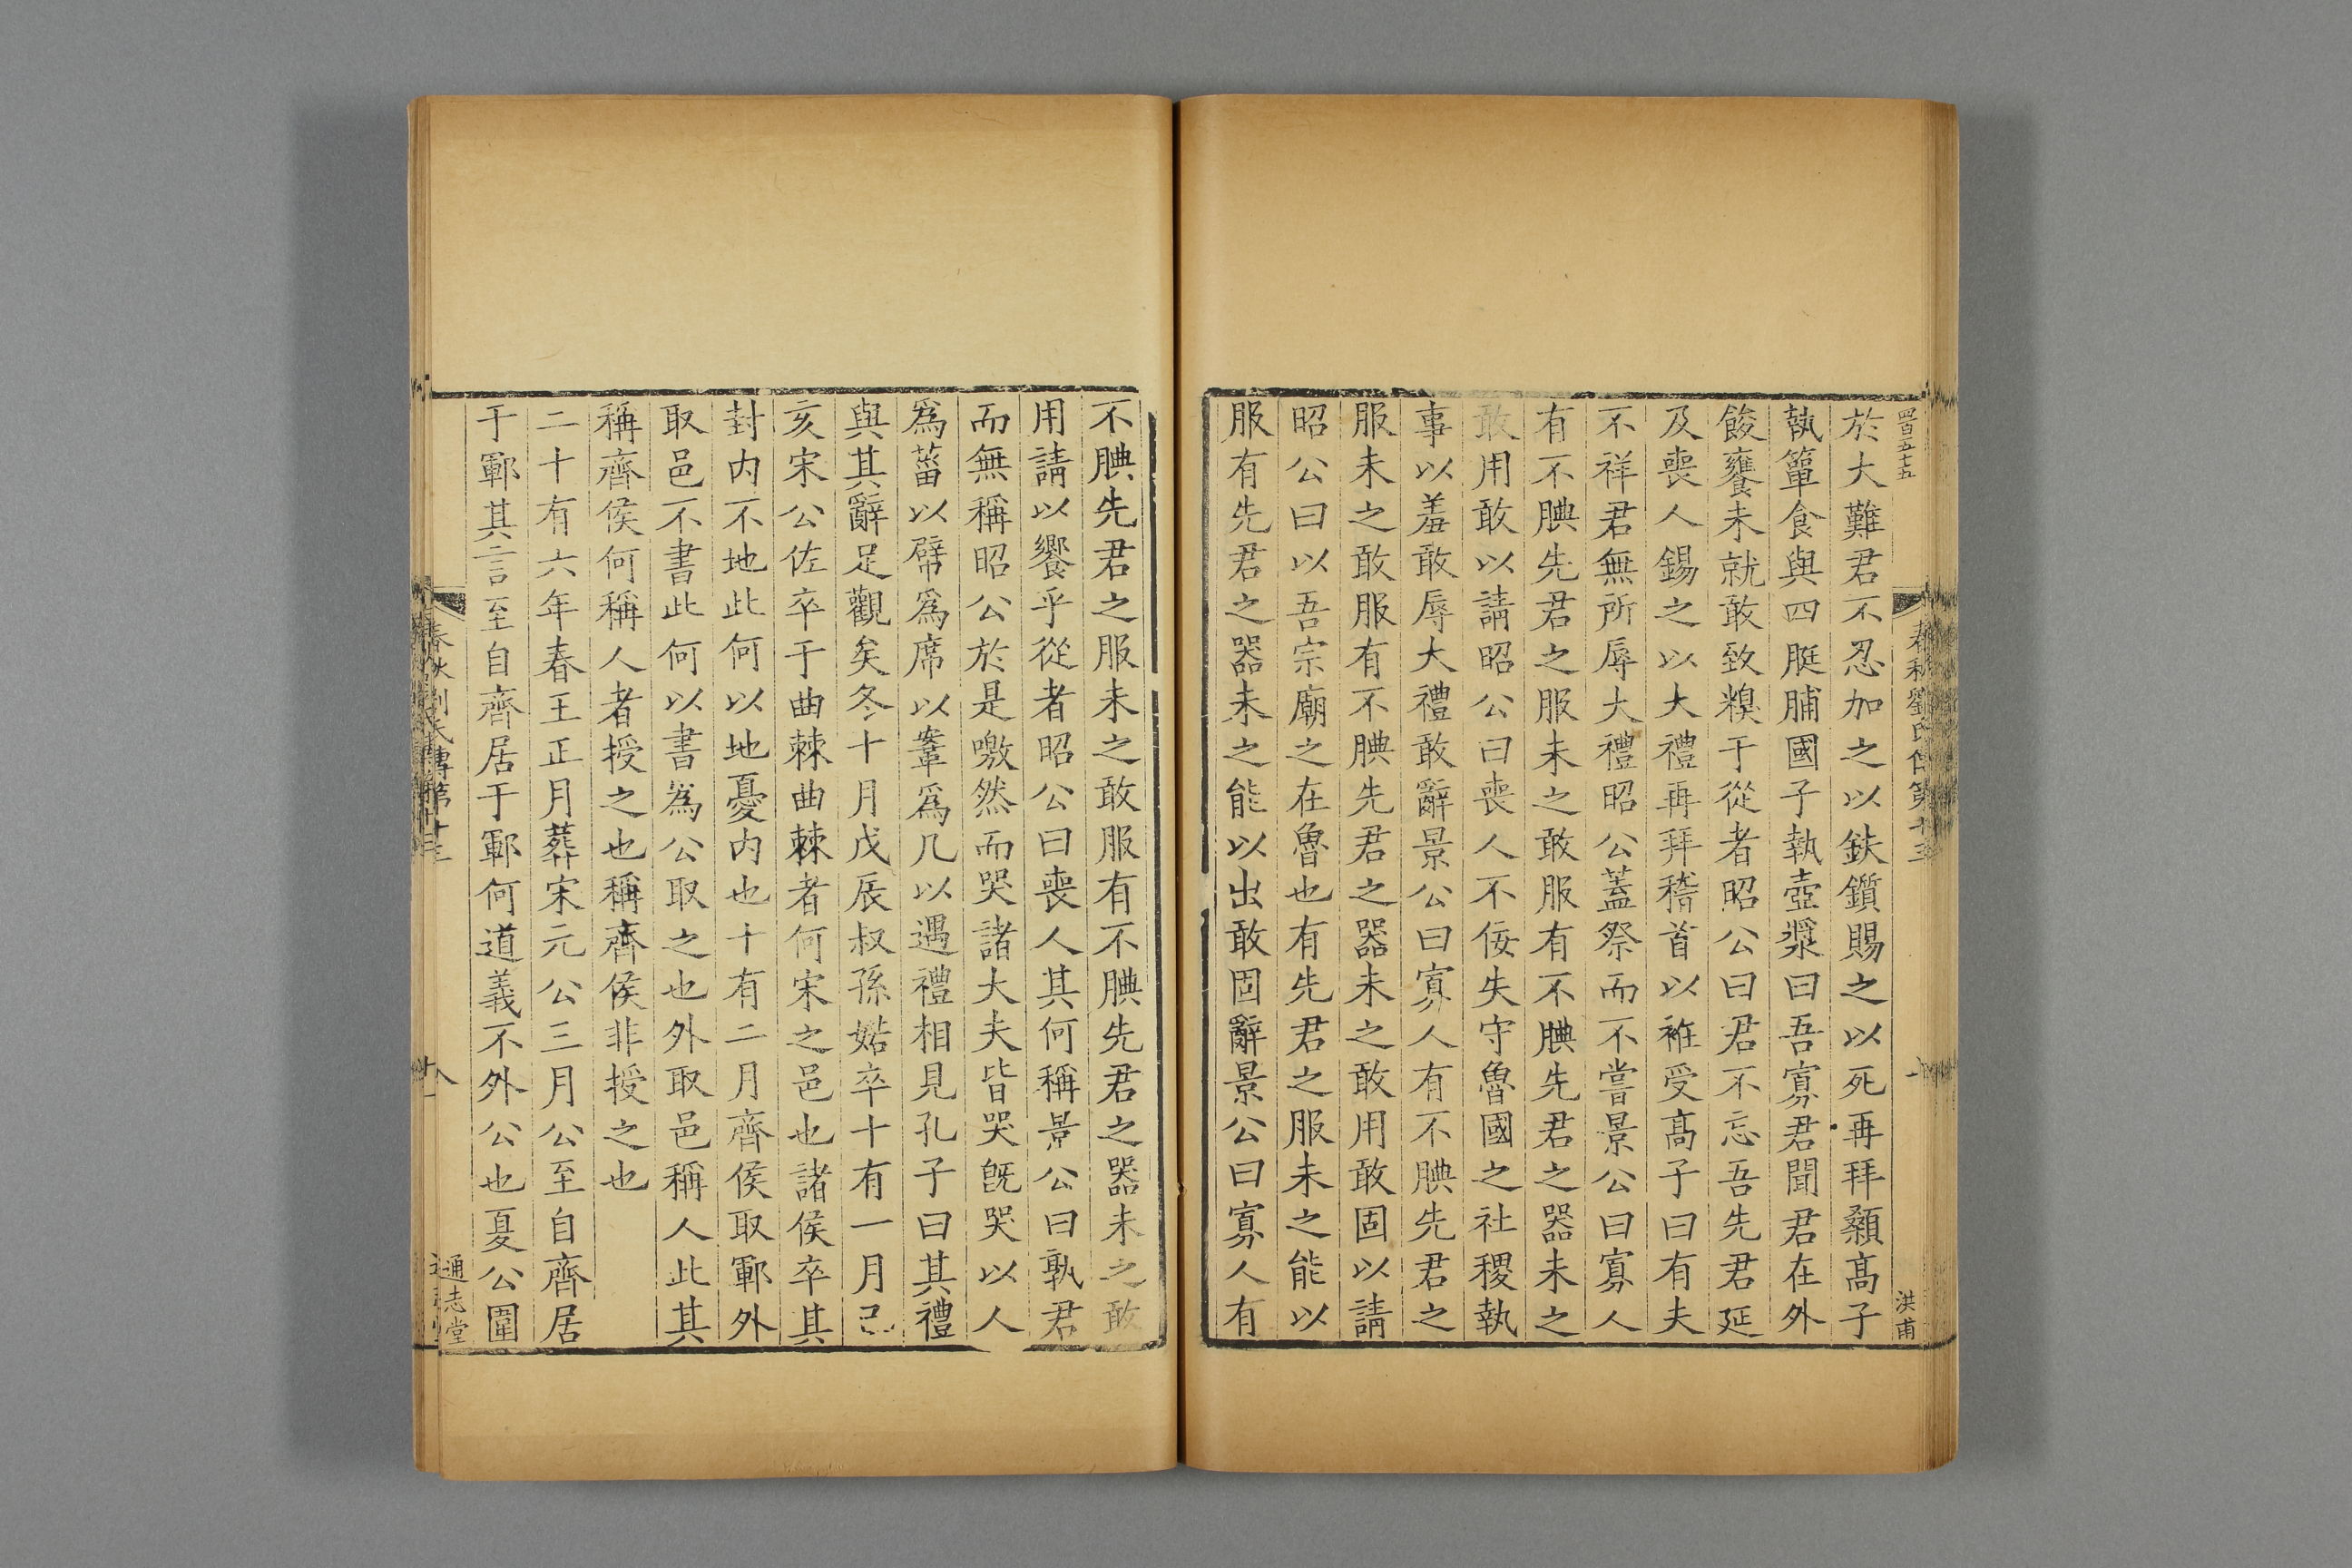 四百五十五
春秋劉氏傳第十三
洪甫
於大難君不忍加之以鈇鑕賜之以死再拜顙高子
執簞食與四脡脯國子執壺漿曰吾寡君聞君在外
餕饔未就敢致糗于從者昭公曰君不忘吾先君延
及喪人錫之以大禮再拜稽首以袵受高子曰有夫
不祥君無所辱大禮昭公蓋祭而不嘗景公曰寡人
有不腆先君之服未之敢服有不腆先君之器未之
敢用敢以請昭公曰喪人不佞失守魯國之社稷執
事以羞敢辱大禮敢辭景公曰寡人有不腆先君之
服未之敢服有不腆先君之器未之敢用敢固以請
昭公曰以吾宗廟之在魯也有先君之服未之能以
服有先君之器未之能以出敢固辭景公曰寡人有
不腆先君之服未之敢服有不腆先君之器未之敢
用請以饗乎從者昭公曰喪人其何稱景公曰孰君
而無稱昭公於是噭然而哭諸大夫皆哭旣哭以人
爲菑以幦爲席以鞌爲几以遇禮相見孔子曰其禮
與其辭足觀矣冬十月戊辰叔孫婼卒十有一月己
亥宋公佐卒于曲棘曲棘者何宋之邑也諸侯卒其
封内不地此何以地憂内也十有二月齊侯取鄆外
取邑不書此何以書爲公取之也外取邑稱人此其
稱齊侯何稱人者授之也稱齊侯非授之也
二十有六年春王正月葬宋元公三月公至自齊居
于鄆其言至自齊居于鄆何道義不外公也夏公圍
春秋劉氏傳第十三
十八
通志堂